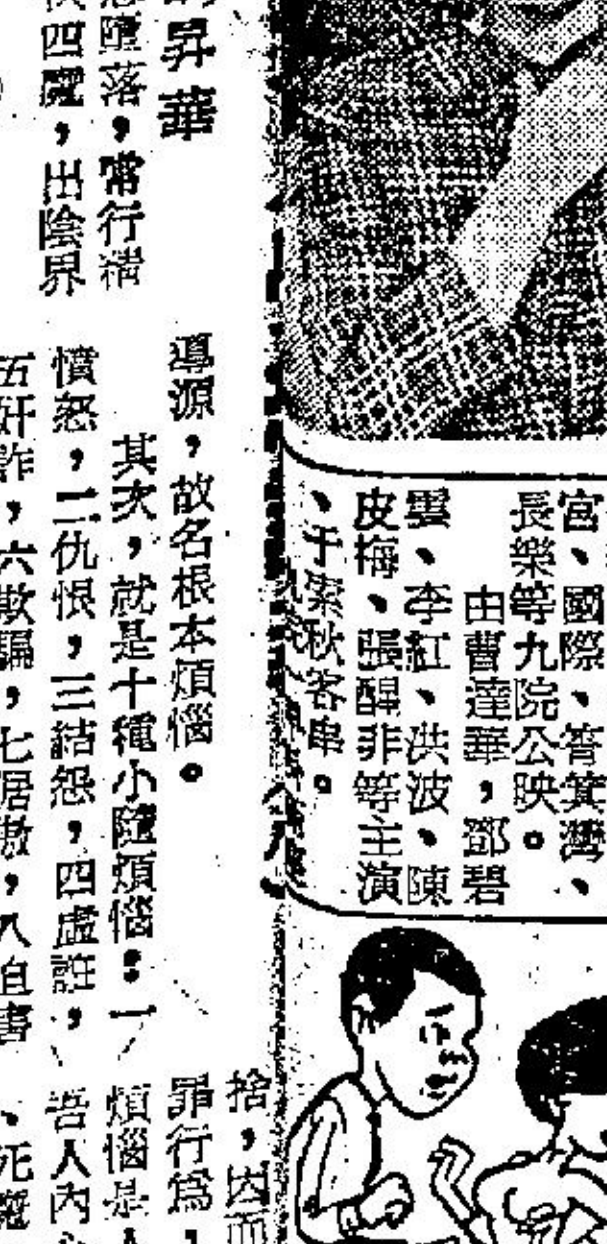 宮、國際、筲箕灣、
長樂等九院公映。
由曹達華，鄧碧
雲、李紅、洪波、陳
皮梅、張醒非等主演
、于素秋客串。
昇華
墮落，常行
四魔，出陰界
導源，故名根本煩惱。
其次，就是十種小隨煩惱：一
憤怒，二仇恨，三結怨，四虛誑，
五奸詐，六欺騙，七倨傲，八自害
捨，因而
罪行爲，
煩惱是人
吾人內心
、死魔